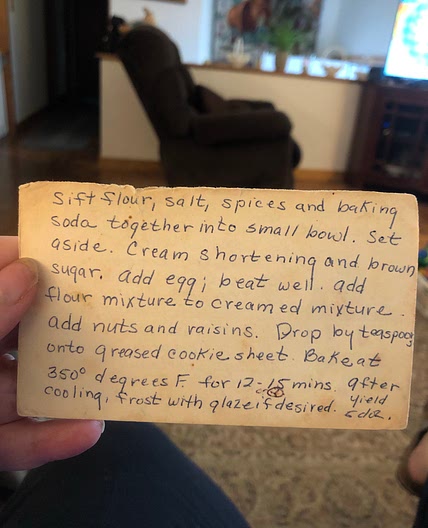 Sift flour, salt, spices and baking
soda together into small bowl. Set
aside. Cream shortening and brown
sugar. add egg; beat well. add
flour mixture to creamed mixture.
add nuts and raisins. Drop by teaspoon
onto greased cookie sheet. Bake at
350° degrees F. for 12-15 mins. after
cooling, frost with glaze if desired. yield
5 doz.